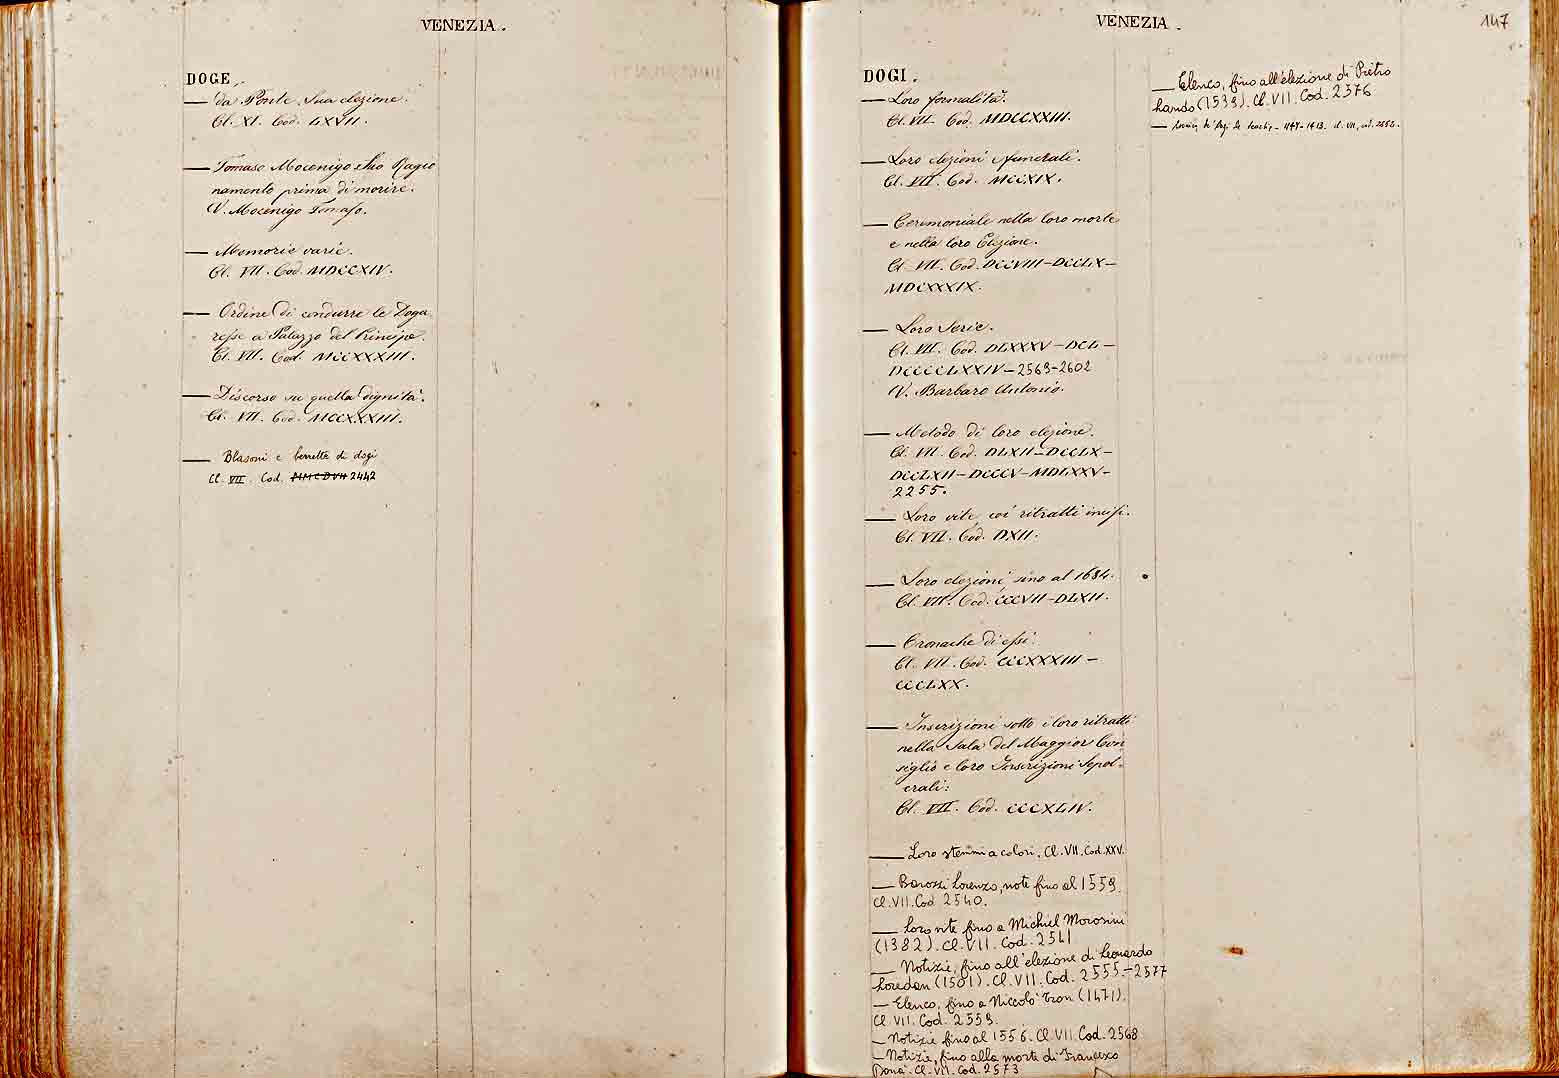 VENEZIA.
DOGE.
— da Ponte. Sua elezione.
Cl. XI. Cod. LXVII.
— Tomaso Mocenigo. Suo Ragio
namento prima di morire.
V. Mocenigo Tomaso.
— Memorie varie.
Cl. VII. Cod. MDCCXIV.
— Ordine di condurre le Doga
resse a Palazzo del Principe.
Cl. VII. Cod. MCCXXXIII.
— Discorso su quella dignità.
Cl. VII. Cod. MCCXXXIII.
— Blasoni e berrette di dogi
Cl. VII. Cod. 2442
VENEZIA.
147
DOGI.
— Loro formalità.
Cl. VII. Cod. MDCCXXIII.
— Loro elezioni e funerali.
Cl. VII. Cod. MCCXIX.
— Ceremoniale nella loro morte
e nella loro Elezione.
Cl. VII. Cod. DCCVIII–DCCLX–
MDCXXXIX.
— Loro Serie.
Cl. VII. Cod. DLXXXV–DCL–
DCCCCLXXIV–2569–2602
V. Barbaro Antonio.
— Metodo di loro elezione.
Cl. VII. Cod. DLXII–DCCLX–
DCCLXII–DCCCV–MDLXXV–
2255.
— Loro vite coi ritratti incisi.
Cl. VII. Cod. DXII.
— Loro elezioni sino al 1684.
Cl. VII. Cod. CCCVII–DLXII.
— Cronache di essi.
Cl. VII. Cod. CCCXXXIII–
CCCLXX.
— Inscrizioni sotto i loro ritratti
nella Sala del Maggior Con
siglio e loro Inscrizioni Sepol-
crali:
Cl. VII. Cod. CCCXLIV.
— Loro stemmi a colori. Cl. VII. Cod. XXV.
— Barozzi Lorenzo, note fino al 1559.
Cl. VII. Cod 2540.
— Loro vite fino a Michiel Morosini
(1382). Cl. VII. Cod. 2541
— Notizie, fino all'elezione di Leonardo
Loredan (1501). Cl. VII. Cod. 2555–2577
— Elenco, fino a Niccolò Tron (1471).
Cl. VII. Cod. 2559.
— Notizie fino al 1556. Cl. VII. Cod. 2568
— Notizie, fino alla morte di Francesco
Donà. Cl. VII. Cod. 2573
— Elenco, fino all'elezione di Pietro
Lando (1539). Cl. VII. Cod. 2376